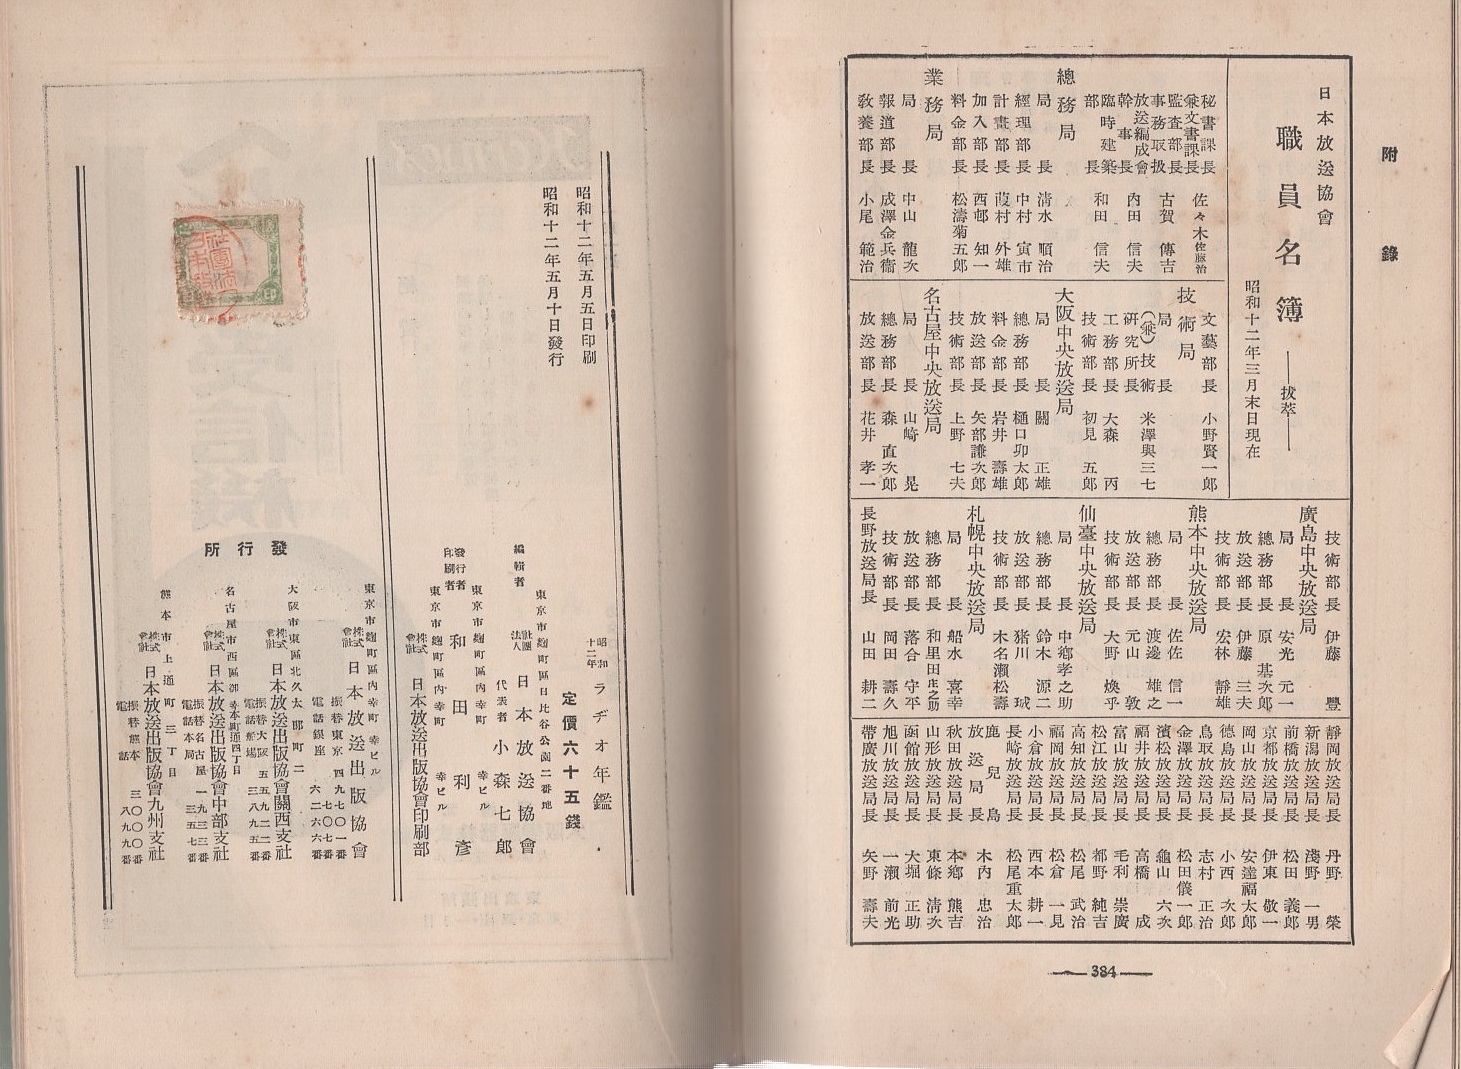 附錄
日本放送協會
職員名簿 ——拔萃——
昭和十二年三月末日現在
秘書課長
兼文書課長 佐々木佐藤治
監査部長
事務取扱 古賀傳吉
放送編成會
幹事長 內田信夫
臨時建築
部長 和田信夫
總務局
局長 清水順治
經理部長 中村寅市
計畫部長 葭村外雄
加入部長 西邨知一
料金部長 松濤菊五郎
業務局
局長 中山龍次
報道部長 成澤金兵衞
敎養部長 小尾範治
文藝部長 小野賢一郎
技術局
局長
(兼)技術硏究所長 米澤與三七
工務部長 大森丙
技術部長 初見五郎
大阪中央放送局
局長 關正雄
總務部長 樋口卯太郎
料金部長 岩井壽雄
放送部長 矢部謙次郎
技術部長 上野七夫
名古屋中央放送局
局長 山﨑晃
總務部長 森直次郎
放送部長 花井孝一
技術部長 伊藤豐
廣島中央放送局
局長 安光元一
總務部長 原基次郎
放送部長 伊藤三夫
技術部長 宏林靜雄
熊本中央放送局
局長 佐佐信一
總務部長 渡邊雄之
放送部長 元山敦
技術部長 大野煥乎
仙臺中央放送局
局長 中鄕孝之助
總務部長 鈴木源二
放送部長 猪川珹
技術部長 木名瀨松壽
札幌中央放送局
局長 船水喜幸
總務部長 和里田庄之助
放送部長 落合守平
技術部長 岡田壽久
長野放送局長 山田耕二
靜岡放送局長 丹野榮
新潟放送局長 淺野一男
前橋放送局長 松田義郎
京都放送局長 伊東敬一
岡山放送局長 安達福太郎
德島放送局長 小西次郎
鳥取放送局長 志村正治
金澤放送局長 松田儀一郎
濱松放送局長 龜山六次
福井放送局長 高橋成
富山放送局長 毛利崇廣
松江放送局長 都野純吉
高知放送局長 松尾武治
福岡放送局長 松倉一見
小倉放送局長 西本耕一
長崎放送局長 松尾重太郎
鹿兒島
放送局長 木內忠治
秋田放送局長 本鄕熊吉
山形放送局長 東條淸次
函館放送局長 大堀正助
旭川放送局長 一瀨前光
帶廣放送局長 矢野壽夫
384
昭和十二年五月五日印刷
昭和十二年五月十日發行
昭和十二年 ラヂオ年鑑
定價六十五錢
東京市麴町區日比谷公園二番地
編輯者 社團法人 日本放送協會
代表者 小森七郎
東京市麴町區內幸町 幸ビル
發行者
印刷者 和田利彥
東京市麴町區內幸町 幸ビル
株式會社 日本放送出版協會印刷部
發行所
東京市麴町區內幸町 幸ビル
株式會社 日本放送出版協會
振替東京 四九七〇一番
電話銀座 七〇七番
六二六六番
大阪市東區北久太郎町二
株式會社 日本放送出版協會關西支社
振替大阪 五九二二番
電話船場 三八九五番
名古屋市西區御幸本町通四丁目
株式會社 日本放送出版協會中部支社
振替名古屋 一九三三番
電話本局 三五七番
熊本市上通町三丁目
株式會社 日本放送出版協會九州支社
振替熊本 三〇〇〇番
電話 八九九番